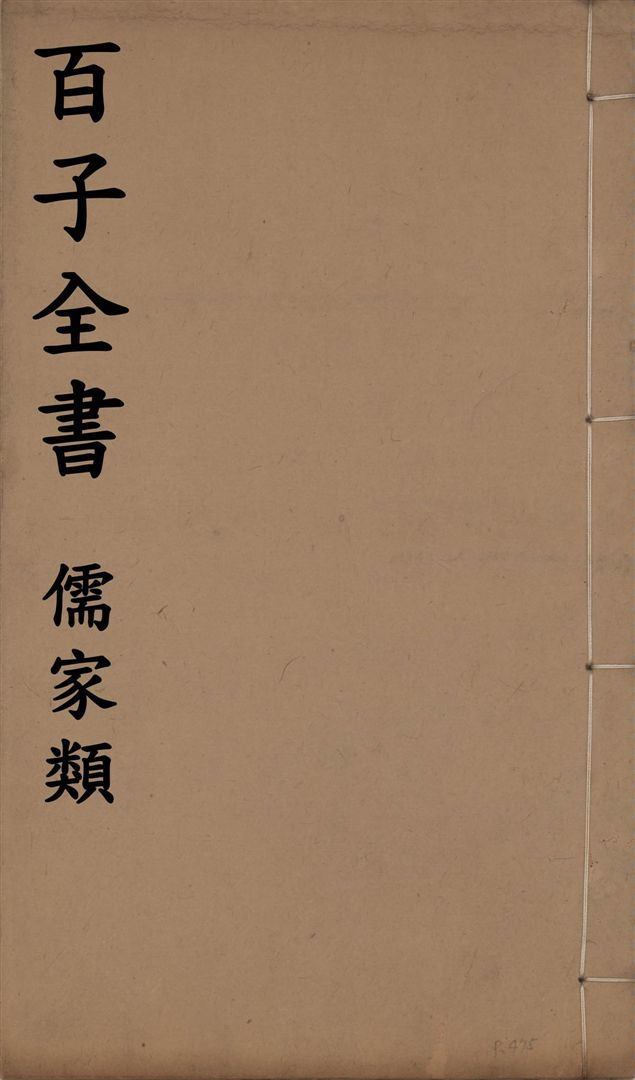 百子全書 儒家類
P.475